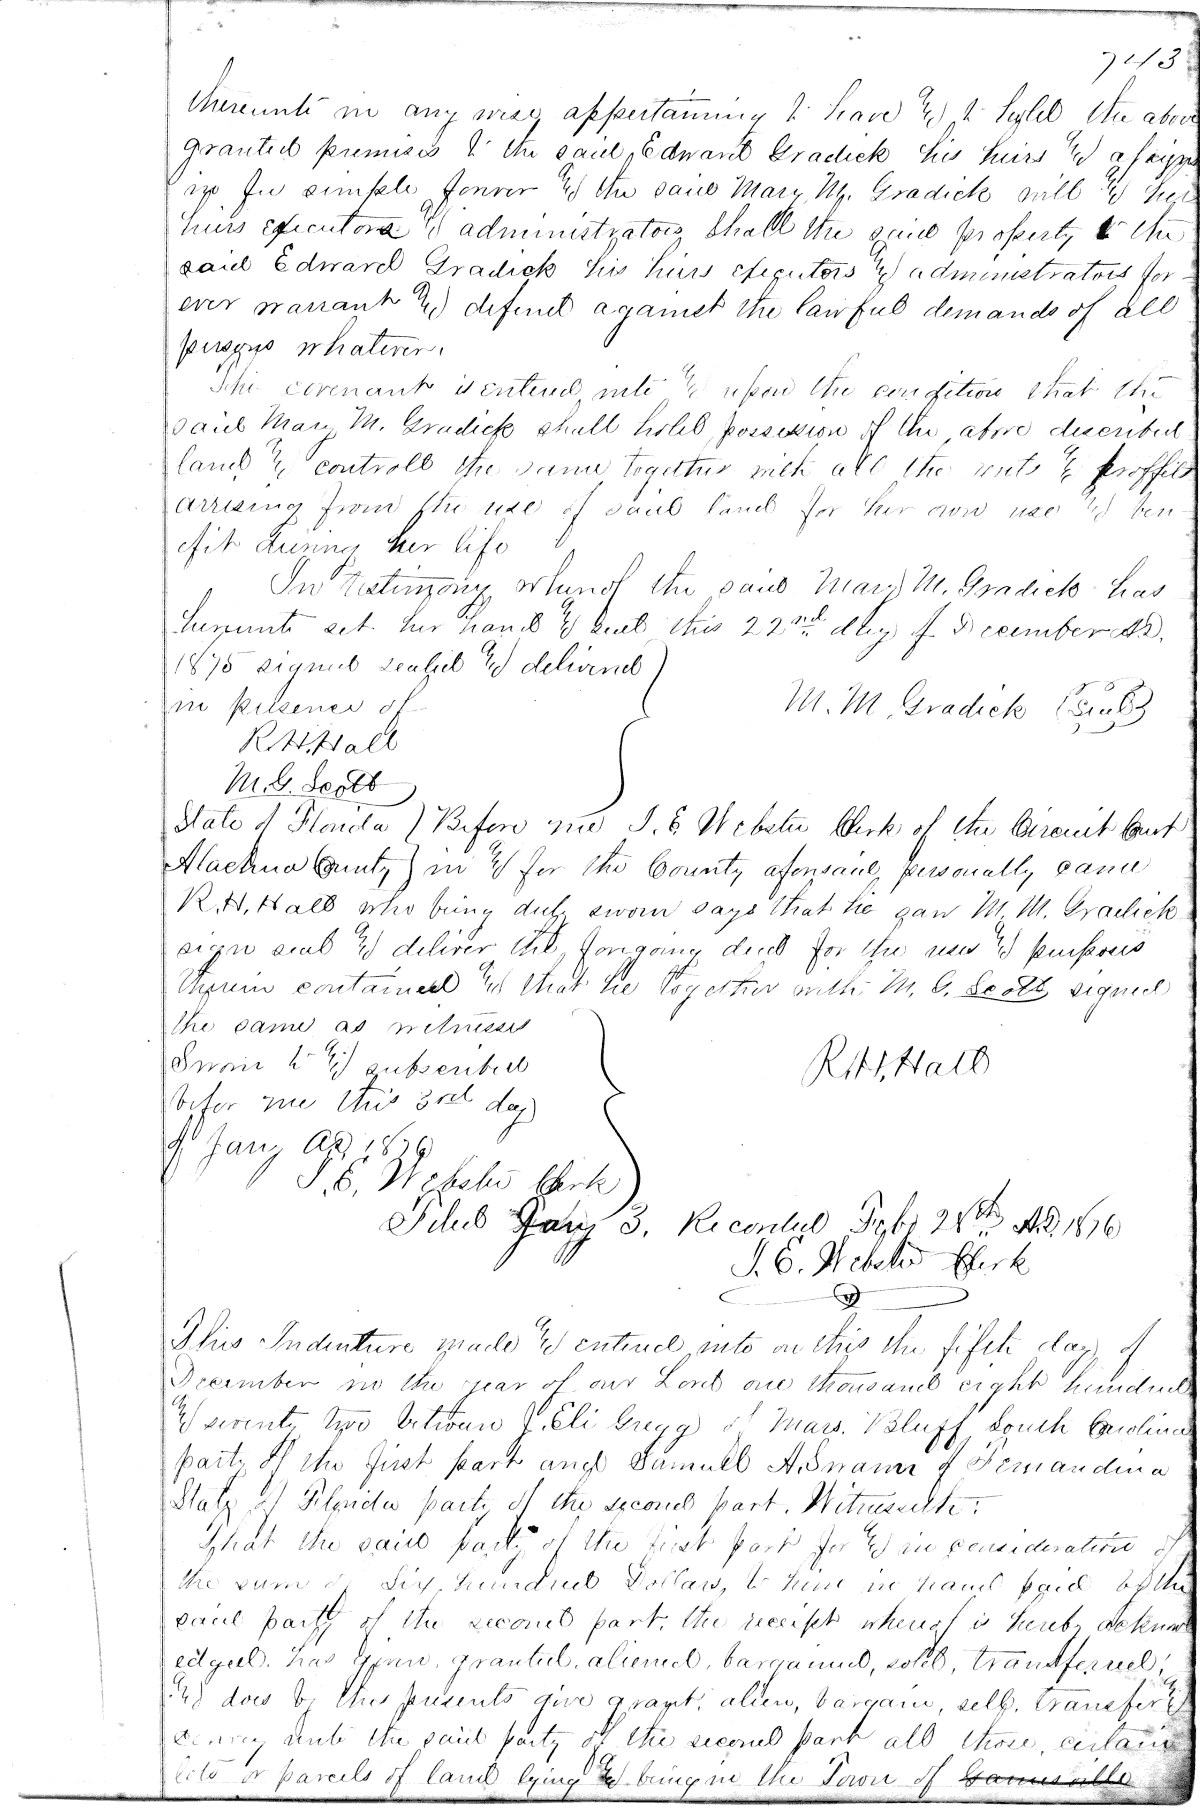 743
thereunto in any wise appertaining to have & to hold the above
granted premises to the said Edward Gradick his heirs & assigns
in fee simple forever & the said Mary M. Gradick will & her
heirs executors & administrators shall the said property to the
said Edward Gradick his heirs executors & administrators for-
ever warrant & defend against the lawful demands of all
persons whatever.
This covenant is entered into & upon the condition that the
said Mary M. Gradick shall hold possession of the above described
land & controll the same together with all the rents & proffits
arrising from the use of said land for her own use & ben-
efit during her life
In testimony whereof the said Mary M. Gradick has
hereunto set her hand & seal this 22nd day of December A.D.
1875 signed sealed & delivered
in presence of
M. M. Gradick (Seal)
R. H. Hall
M. G. Scott
State of Florida } Before me J. E. Webster Clerk of the Circuit Court
Alachua County } in & for the County aforesaid personally came
R. H. Hall who being duly sworn says that he saw M. M. Gradick
sign seal & deliver the foregoing deed for the uses & purposes
therein contained & that he together with M. G. Scott signed
the same as witnesses
Sworn to & subscribed
R. H. Hall
befor me this 3rd day
of Jany AD 1876
J. E. Webster Clerk
Filed Jany 3. Recorded Feby 28th A.D. 1876
J. E. Webster Clerk
This Indenture made & entered into on this the fifth day of
December in the year of our Lord one thousand eight hundred
& seventy two between J. Eli Gregg of Mars. Bluff South Carolina
party of the first part and Samuel A. Swann of Fernandina
State of Florida party of the second part. Witnesseth:
That the said party of the first part for & in consideration of
the sum of Six hundred Dollars, to him in hand paid by the
said party of the second part, the receipt whereof is hereby acknowl
edged. has given, granted, aliened, bargained, sold, transferred,
& does by these presents give grant, alien, bargain, sell, transfer &
convey unto the said party of the second part all those, certain
lots or parcels of land lying & being in the Town of Gainesville